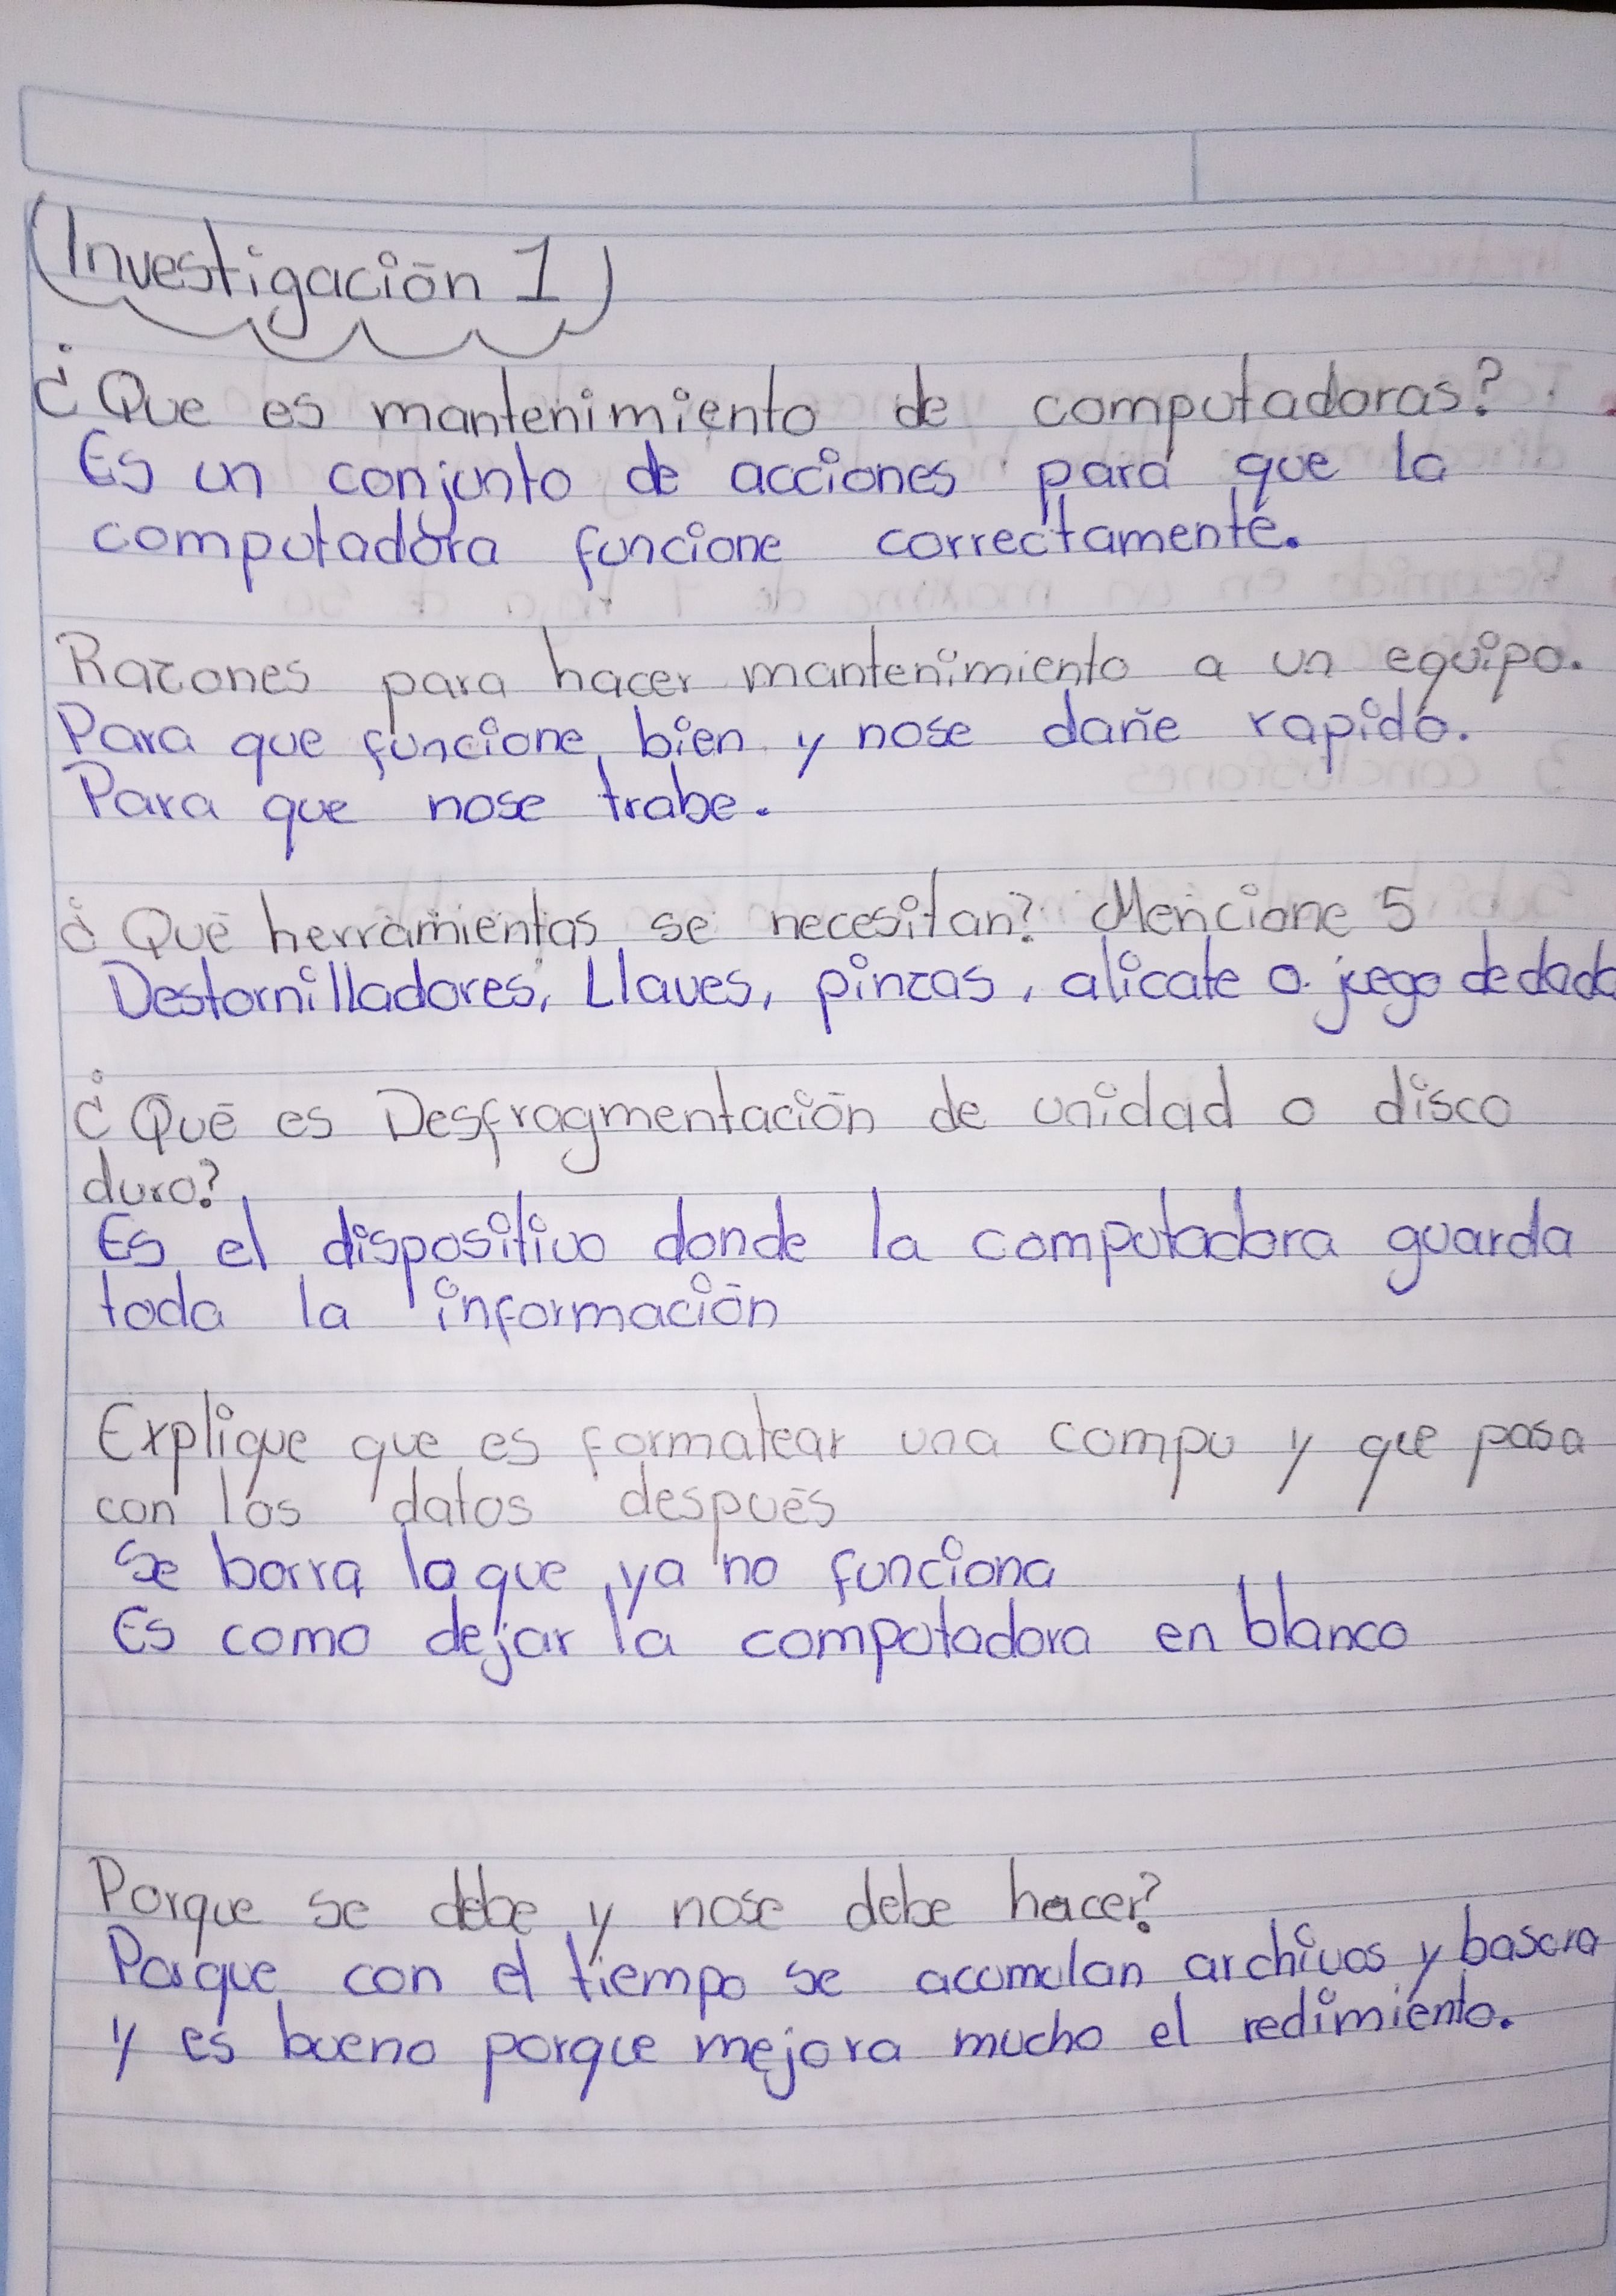 Investigación 1
¿Que es mantenimiento de computadoras?
Es un conjunto de acciones para que la
computadora funcione correctamente.
Razones para hacer mantenimiento a un equipo.
Para que funcione bien y nose dañe rapido.
Para que nose trabe.
¿Qué herramientas se necesitan? Mencione 5
Destornilladores, Llaves, pinzas, alicate o juego de dado
¿Qué es Desfragmentación de unidad o disco
duro?
Es el dispositivo donde la computadora guarda
toda la información
Explique que es formatear una compu y que pasa
con los datos después
Se borra lo que ya no funciona
Es como dejar la computadora en blanco
Porque se debe y nose debe hacer?
Porque con el tiempo se acumulan archivos y basura
y es bueno porque mejora mucho el redimiento.